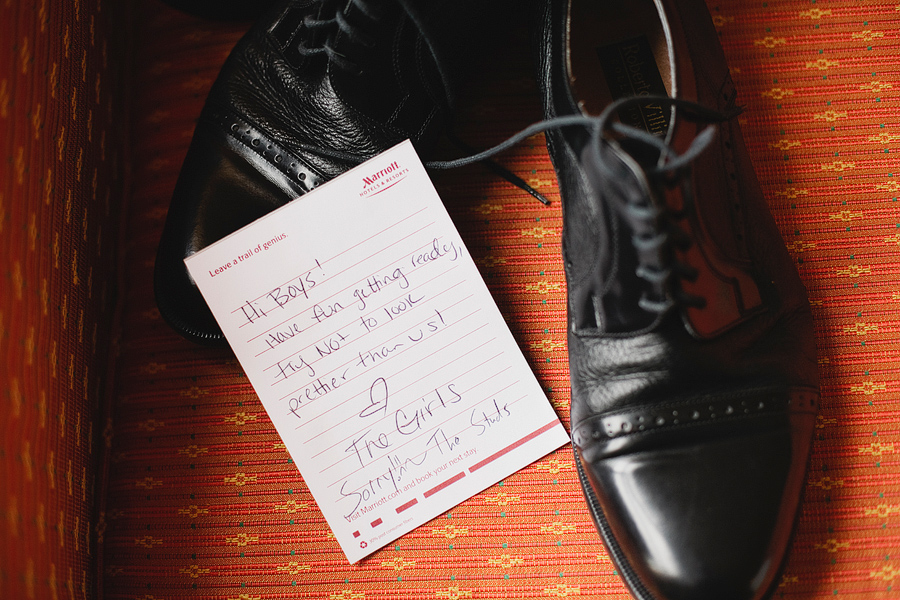 Marriott
HOTELS & RESORTS
Leave a trail of genius.
Hi Boys!
Have fun getting ready,
try Not to look
prettier than us!
The Girls
Sorry!!
The Studs
Visit Marriott.com and book your next stay.